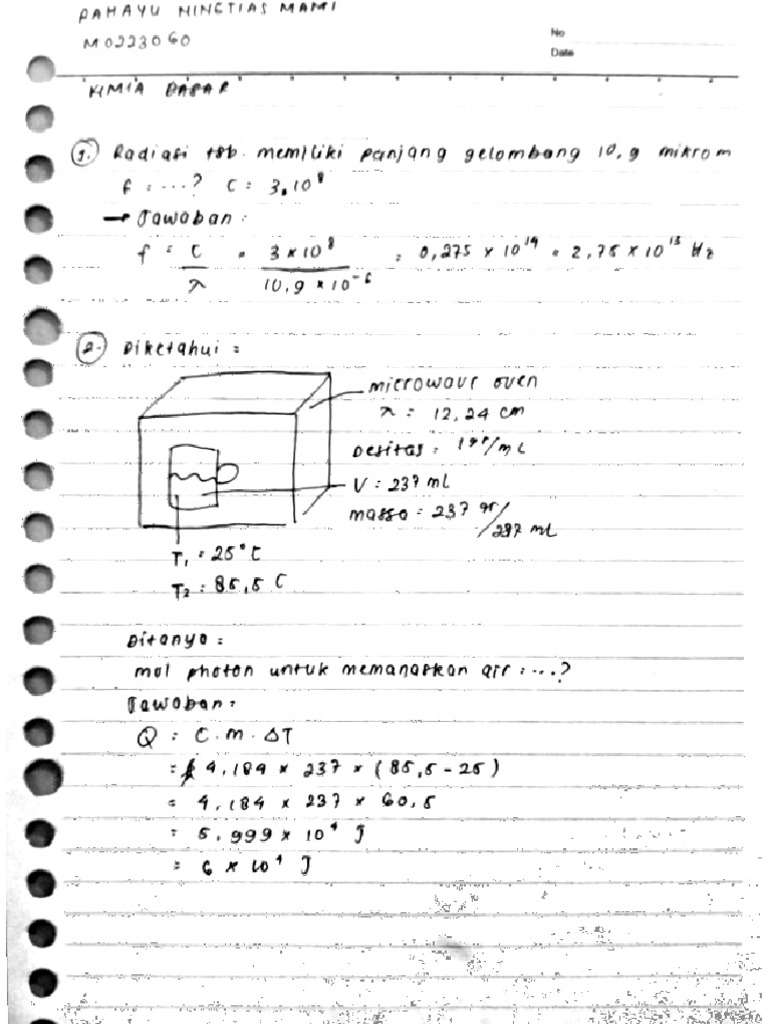 RAHAYU NINGTIAS MAMI
M0223060
No
Date
KIMIA DASAR
1. Radiasi tsb. memiliki panjang gelombang 10,9 mikrom
f = ...? C = 3.10⁸
→ Jawaban:
f = C/λ = 3 × 10⁸ / 10,9 × 10⁻⁶ = 0,275 × 10¹⁴ = 2,75 × 10¹³ Hz
2. Diketahui =
microwave oven
λ = 12,24 cm
Desitas = 1 gr/mL
V = 237 mL
massa = 237 gr/237 mL
T₁ = 25°C
T₂ = 85,5 C
Ditanya =
mol photon untuk memanaskan air = ...?
Jawaban =
Q = C.m.ΔT
= 4,184 × 237 × (85,5 - 25)
= 4,184 × 237 × 60,5
= 5,999 × 10⁴ J
= 6 × 10⁴ J